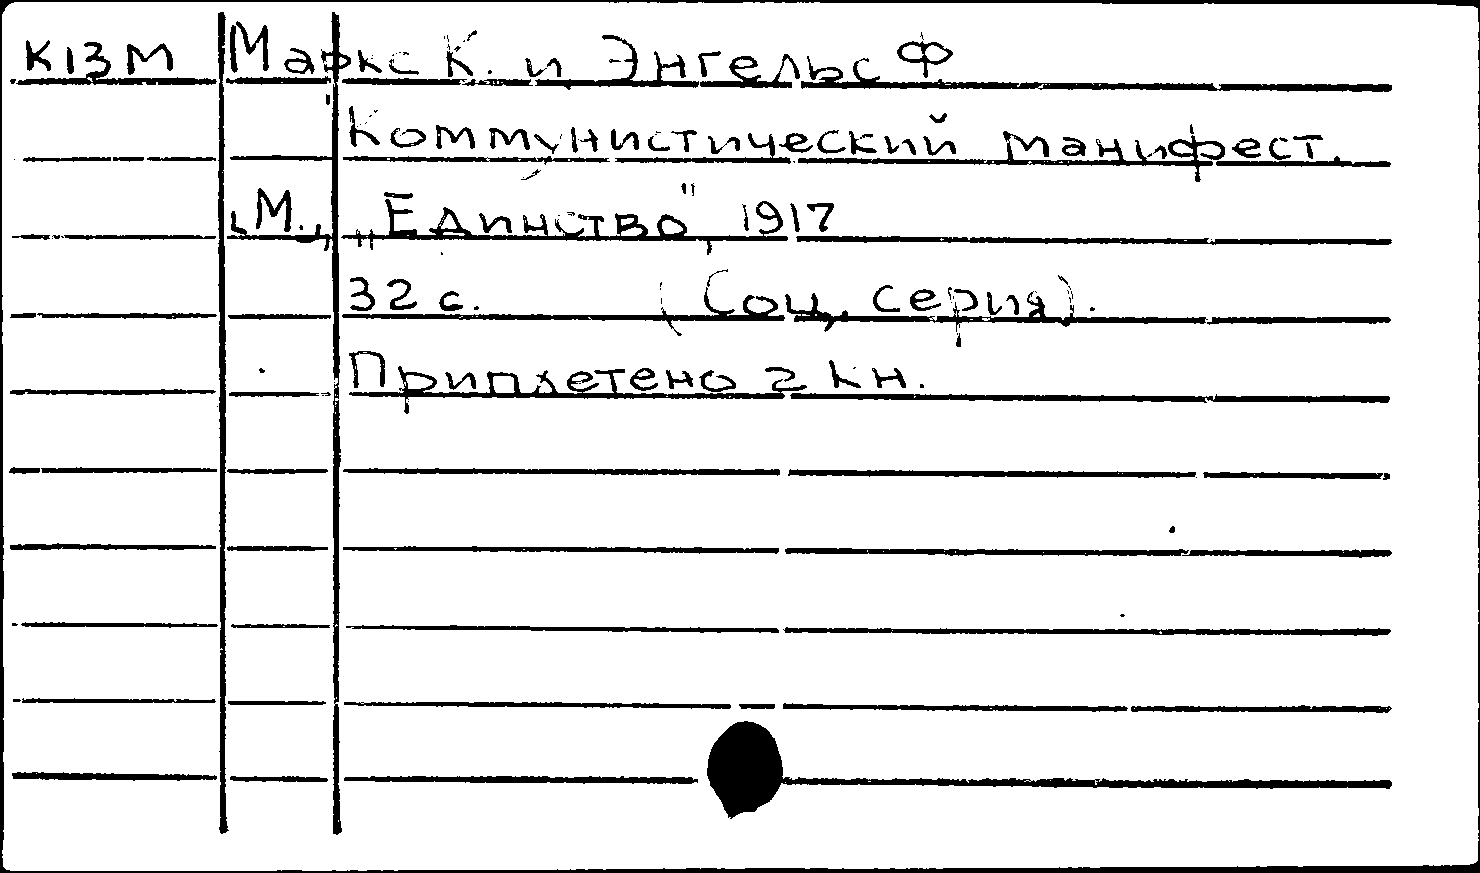 К13М Маркс К. и Энгельс Ф
Коммунистический манифест.
М., „Единство", 1917
32 с. (Соц. серия).
Приплетено 2 кн.